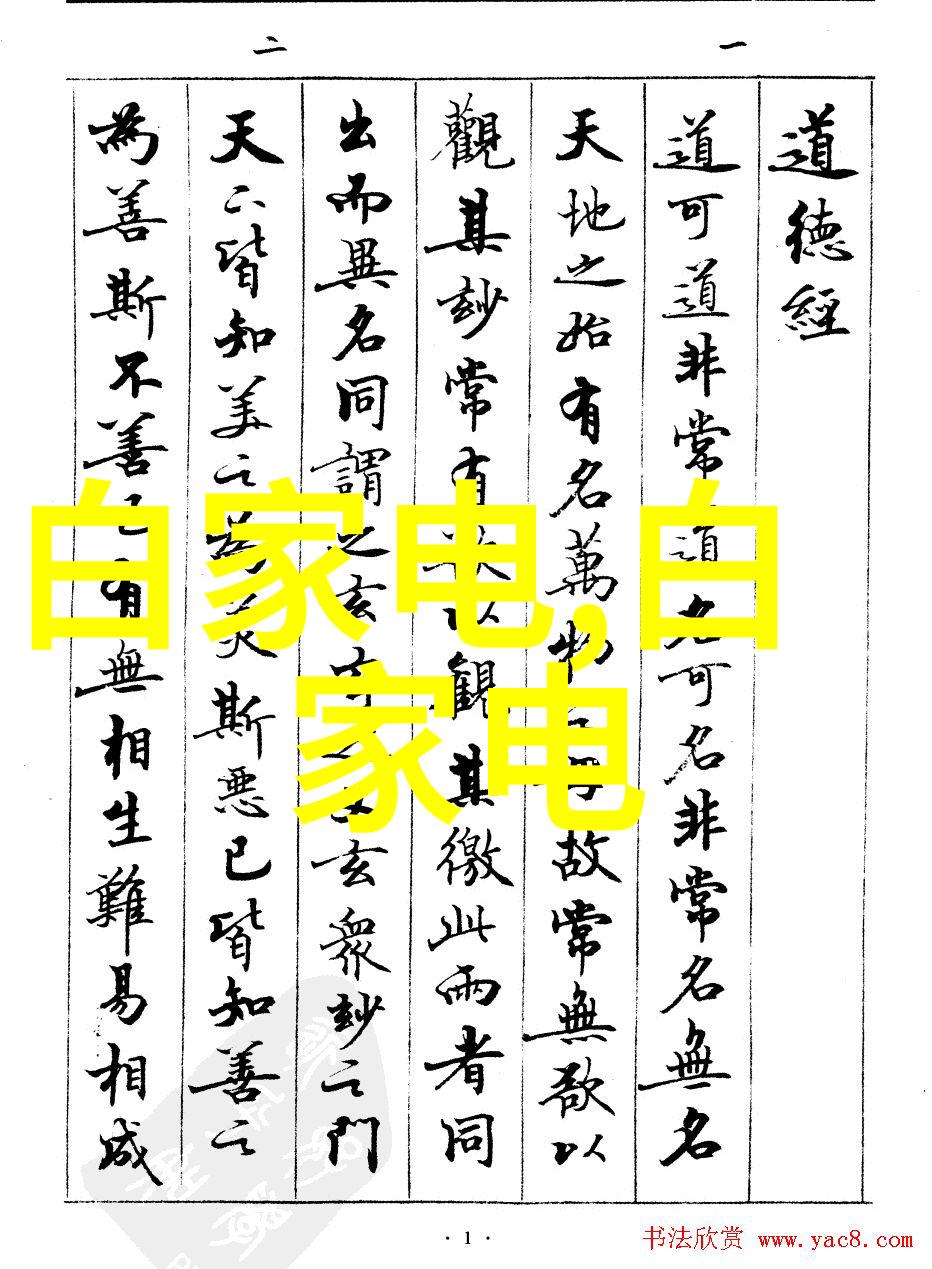 一
二
道德經
道可道非常道名可名非常名無名
天地之始有名萬物之母故常無欲以
觀其玅常有欲以觀其徼此兩者同
出而異名同謂之玄玄之又玄衆玅之門
天下皆知美之為美斯惡已皆知善之
為善斯不善已有無相生難易相成
白家电,白
家电
· 1 ·
书法欣赏 www.yac8.com